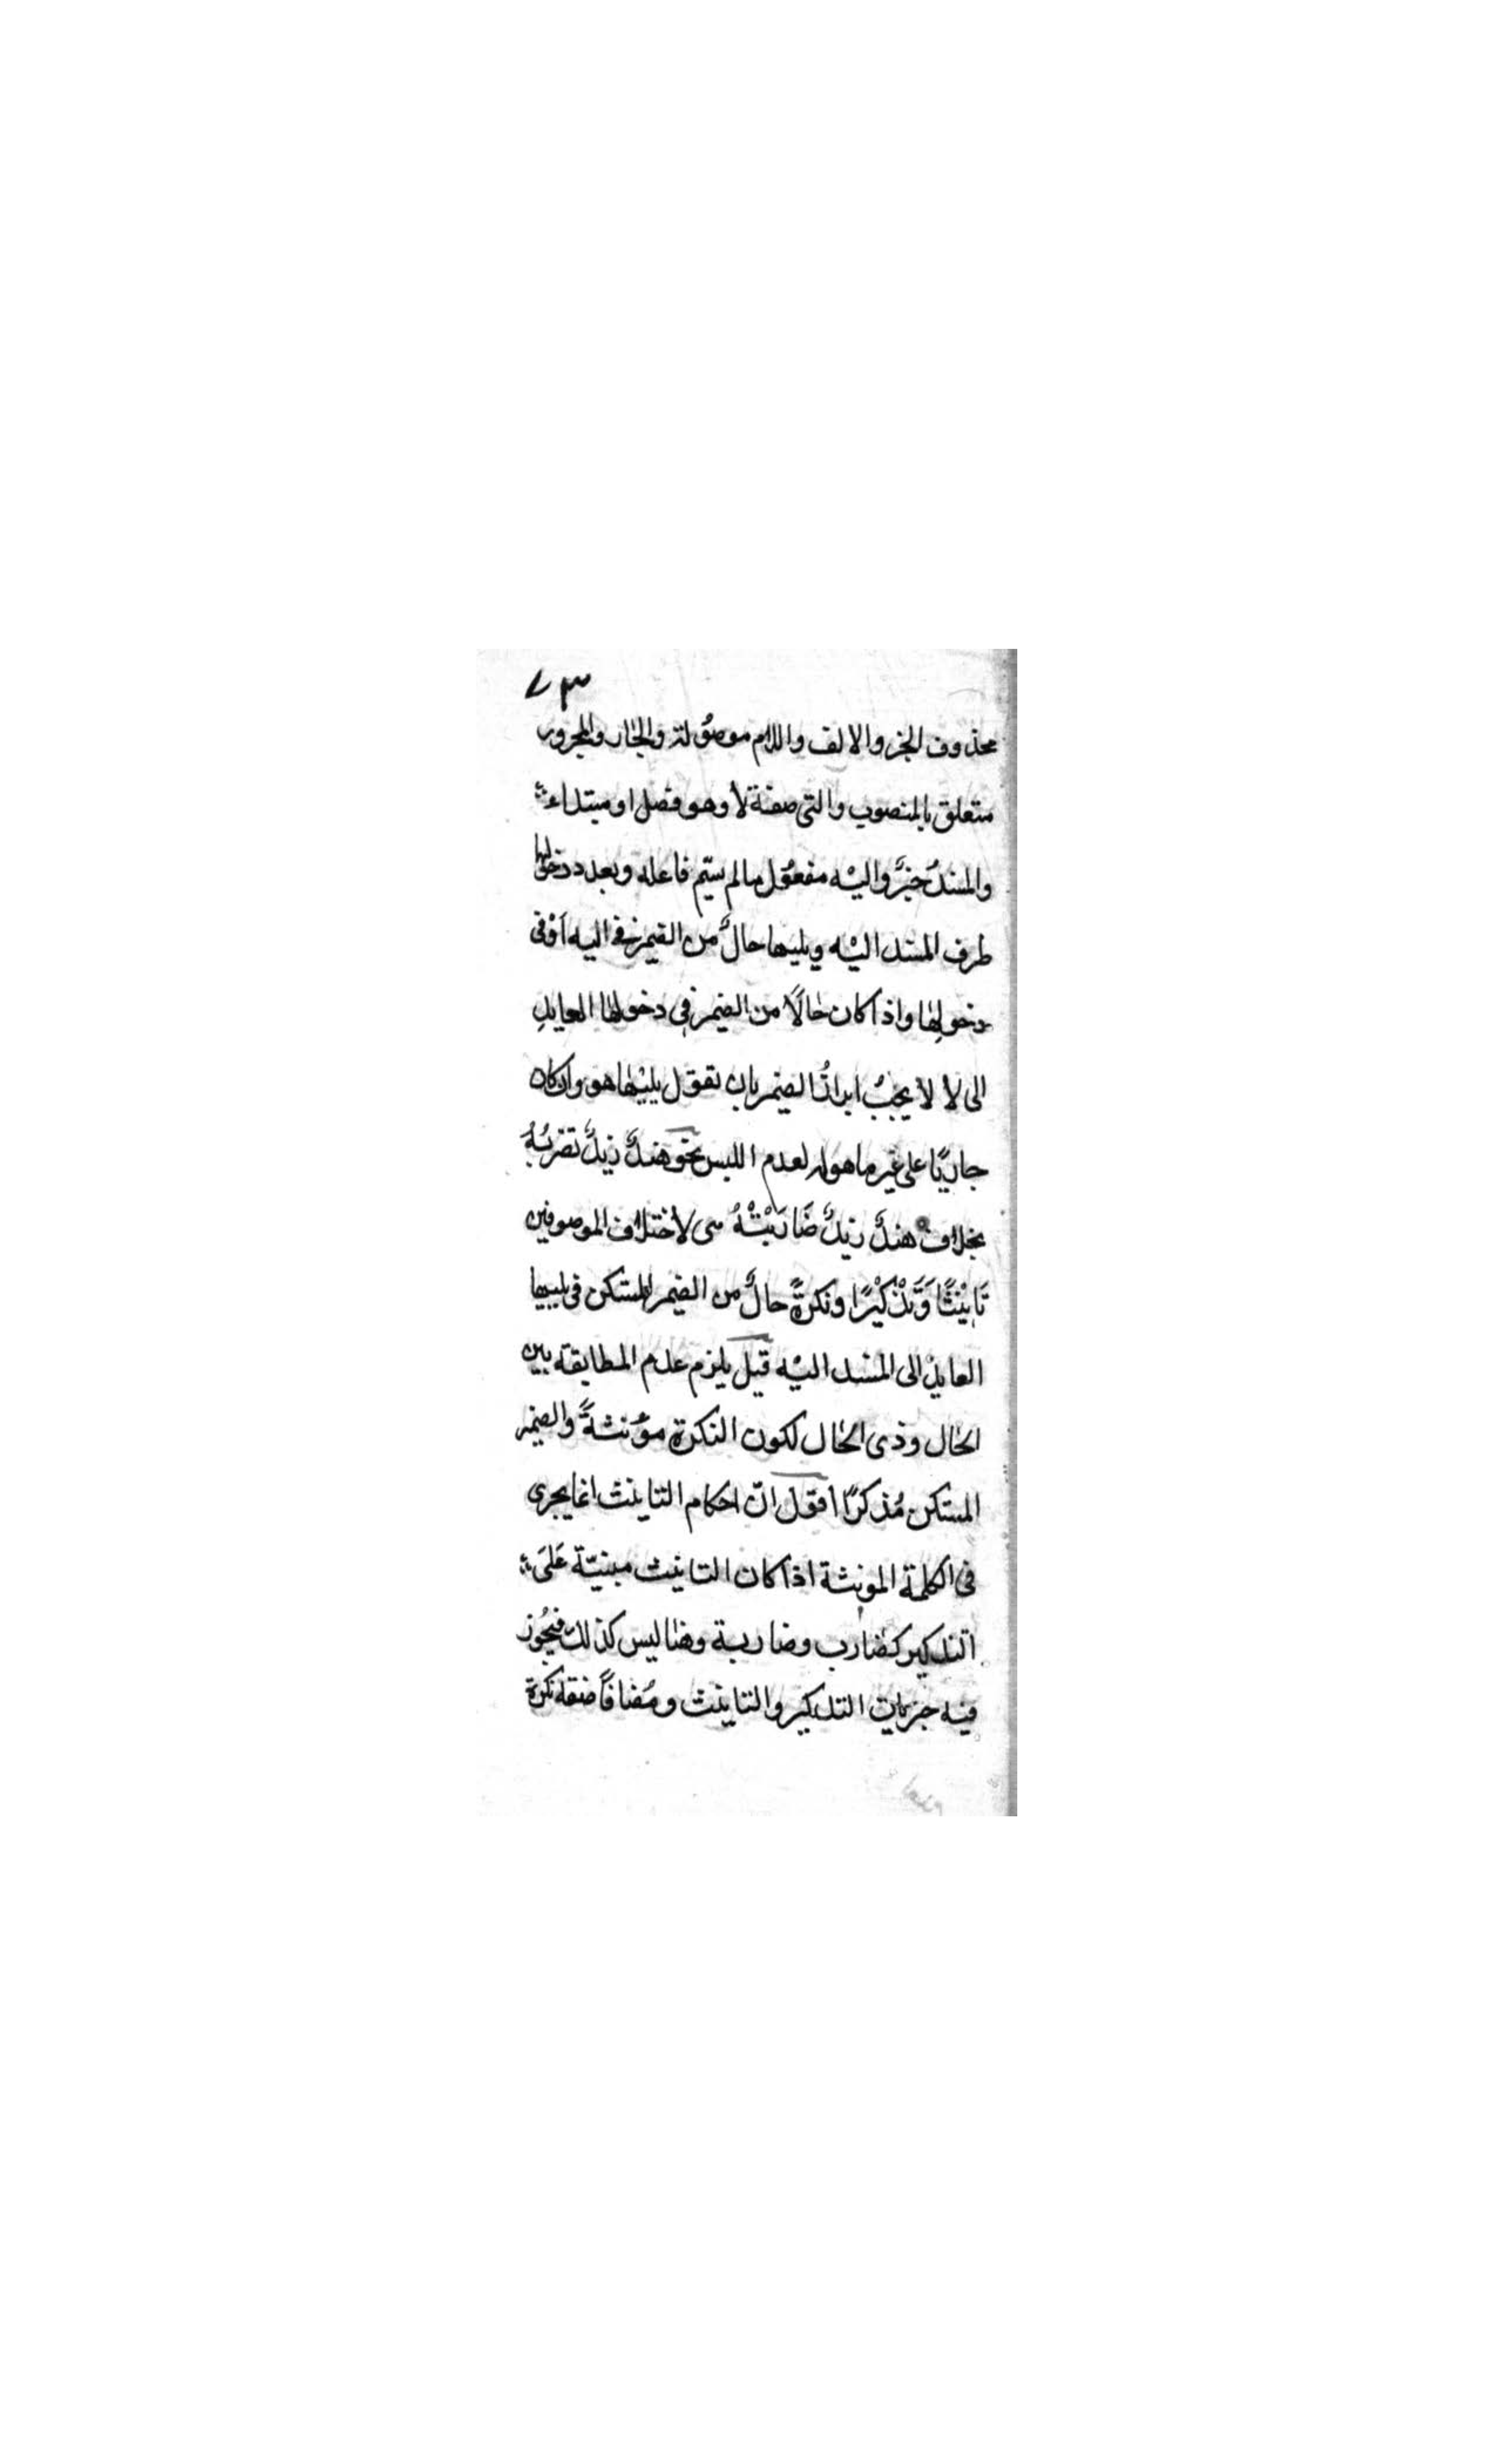 ٧٣
محذوف الخبر والالف واللام موصُولة والجار والمجرور
متعلق بالمنصوب والتى صفة لا وهو فصل او مبتداء
والمسندُ خبرٌ واليْه مفعُول مالم يسّم فاعله وبعد دخولها
طرف المسند اليْه ويليها حالٌ من الضمير فى اليه اَوْ فى
دخولِها واذا كان حالًا من الضمير فى دخولها العايدِ
الى لا لا يجبُ ابرازُ الضمير بان تقول يليْها هو وان كان
جاريًا على غير ما هو له لعدم اللبس نحو هندٌ زيدٌ تضربُهُ
بخلاف هندٌ زيدٌ ضَارَبَتْهُ هى لاختلاف الموصوفين
تَانِيْثًا وَتَذْكِيْرًا ونكرةً حالٌ من الضمير المستكن فى يليها
العايد الى المسند اليْه قيل يلزم عدم المطابقة بين
الحال وذى الحال لكون النكرة مؤنثةً والضمير
المستكن مُذكرًا اقول انّ احكام التانيث انما يجرى
فى الكلمة المونثة اذا كان التانيث مبنيّة عَلىَ
التذكير كضارب وضاربة وهنا ليس كذلك فيجُوز
فيه جريان التذكير والتانيث ومُضافًا صفة نكرة